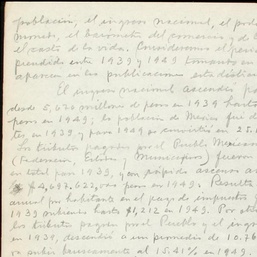 población, el ingreso nacional, el pod
moneda, el barómetro del comercio, y de l
el costo de la vida. Consideremos el perio
prendido entre 1939 y 1949 tomando en
aparecen en las publicaciones estadística
El ingreso nacional ascendió pa
desde 5,626 millones de pesos en 1939 hasta
pesos en 1949; la población de México fué d
tes en 1939, y para 1949 se convirtió en 25.1
Los tributos pagados por el Pueblo Mexican
(Federación, Estados y Municipios) fueron
en total para 1939, y con rápidos ascensos a
$4,697.622, pesos en 1949. Resulta
anual por habitante en el pago de impuestos
1939 subiendo hasta $1,212 en 1949. Por ot
los tributos pagados por el Pueblo y el ingr
en 1939, descendió a un promedio de 10.76
a subir nuevamente al 15.41% en 194